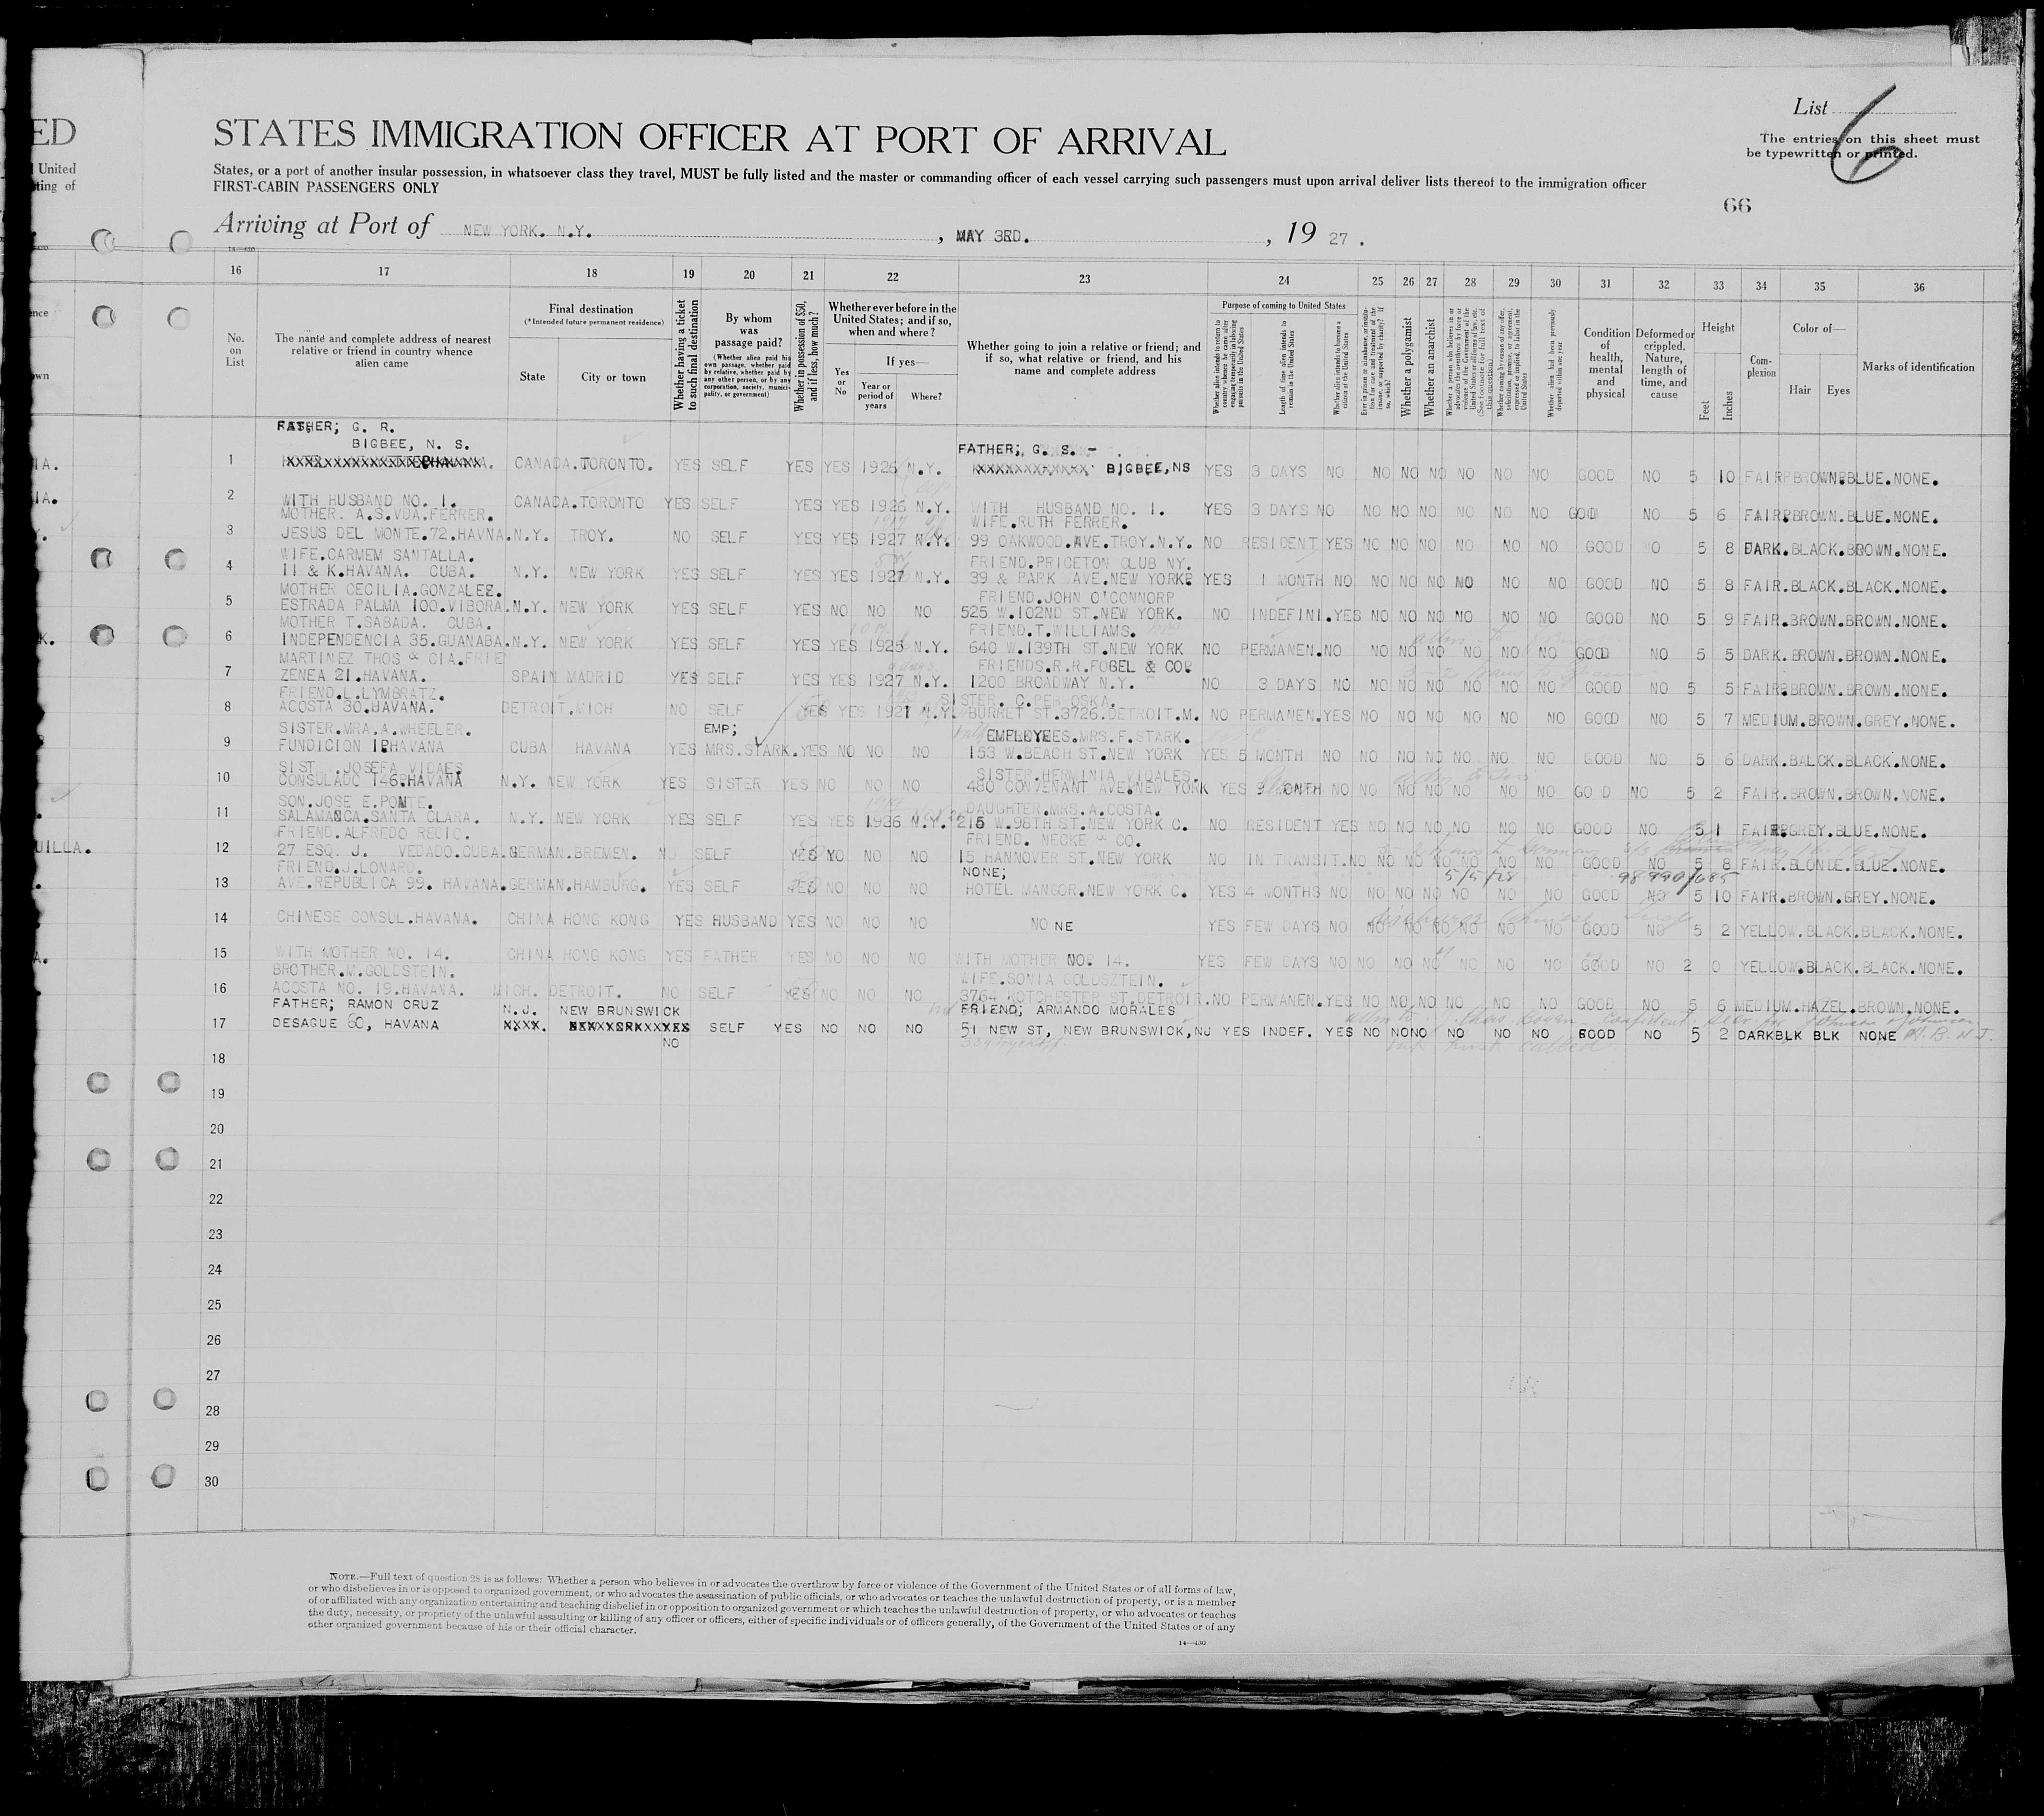 List 6
ED
STATES IMMIGRATION OFFICER AT PORT OF ARRIVAL
The entries on this sheet must
be typewritten or printed.
United
ting of
States, or a port of another insular possession, in whatsoever class they travel, MUST be fully listed and the master or commanding officer of each vessel carrying such passengers must upon arrival deliver lists thereof to the immigration officer
FIRST-CABIN PASSENGERS ONLY
66
Arriving at Port of NEW YORK. N.Y. , MAY 3RD. , 19 27 .
14—430
16 17 18 19 20 21 22 23 24 25 26 27 28 29 30 31 32 33 34 35 36
No. on List
The name and complete address of nearest relative or friend in country whence alien came
Final destination
(*Intended future permanent residence)
State
City or town
Whether having a ticket to such final destination
By whom was passage paid?
(Whether alien paid his own passage, whether paid by relative, whether paid by any other person, or by any corporation, society, municipality, or government)
Whether in possession of $50, and if less, how much?
Whether ever before in the United States; and if so, when and where?
Yes or No
If yes—
Year or period of years
Where?
Whether going to join a relative or friend; and if so, what relative or friend, and his name and complete address
Purpose of coming to United States
Whether alien intends to return to country whence he came after engaging temporarily in laboring pursuits in the United States
Length of time alien intends to remain in the United States
Whether alien intends to become a citizen of the United States
Ever in prison or almshouse, or institution for care and treatment of the insane, or supported by charity? If so, which?
Whether a polygamist
Whether an anarchist
Whether a person who believes in or advocates the overthrow by force or violence of the Government of the United States or all forms of law, etc. (See footnote for full text of this question)
Whether coming by reason of any offer, solicitation, promise, or agreement, expressed or implied, to labor in the United States
Whether alien had been previously deported within one year
Condition of health, mental and physical
Deformed or crippled. Nature, length of time, and cause
Height
Feet
Inches
Complexion
Color of—
Hair
Eyes
Marks of identification
FATHER; G. R.
BIGBEE, N. S. FATHER; G. S. -
1 CANADA.TORONTO. YES SELF YES YES 1926 N.Y. BIGBEE,NS YES 3 DAYS NO NO NO NO NO NO NO GOOD NO 5 10 FAIR BROWN BLUE.NONE.
2 WITH HUSBAND NO. 1. CANADA.TORONTO YES SELF YES YES 1926 N.Y. WITH HUSBAND NO. 1. YES 3 DAYS NO NO NO NO NO NO NO GOOD NO 5 6 FAIR BROWN.BLUE.NONE.
MOTHER. A.S.VDA.FERRER. WIFE.RUTH FERRER.
3 JESUS DEL MONTE.72.HAVNA.N.Y. TROY. NO SELF YES YES 1927 N.Y. 99 OAKWOOD.AVE.TROY.N.Y. NO RESIDENT YES NO NO NO NO NO NO GOOD NO 5 8 DARK.BLACK.BROWN.NONE.
WIFE.CARMEM SANTALLA. FRIEND.PRICETON CLUB NY.
4 11 & K.HAVANA. CUBA. N.Y. NEW YORK YES SELF YES YES 1927 N.Y. 39 & PARK AVE.NEW YORK YES 1 MONTH NO NO NO NO NO NO NO GOOD NO 5 8 FAIR.BLACK.BLACK.NONE.
MOTHER CECILIA.GONZALES. FRIEND.JOHN O'CONNORP
5 ESTRADA PALMA 100.VIBORA.N.Y. NEW YORK YES SELF YES NO NO NO 525 W.102ND ST.NEW YORK. NO INDEFINI.YES NO NO NO NO NO NO GOOD NO 5 9 FAIR.BROWN.BROWN.NONE.
MOTHER T.SABADA. CUBA. FRIEND.T.WILLIAMS.
6 INDEPENDENCIA 35.GUANABA.N.Y. NEW YORK YES SELF YES YES 1925 N.Y. 640 W.139TH ST.NEW YORK NO PERMANEN.NO NO NO NO NO NO NO GOOD NO 5 5 DARK.BROWN.BROWN.NONE.
MARTINEZ THOS & CIA.FRIE FRIENDS.R.R.FOBEL & CO
7 ZENEA 21.HAVANA. SPAIN MADRID YES SELF YES YES 1927 N.Y. 1200 BROADWAY N.Y. NO 3 DAYS NO NO NO NO NO NO NO GOOD NO 5 5 FAIR BROWN.BROWN.NONE.
FRIEND.L.LYMBRATZ. SISTER. C.PEB OSKA.
8 ACOSTA 30.HAVANA. DETROIT.MICH NO SELF YES YES 1927 N.Y. BURRET ST.3726.DETROIT.M. NO PERMANEN.YES NO NO NO NO NO NO GOOD NO 5 7 MEDIUM.BROWN.GREY.NONE.
SISTER.MRA.A.WHEELER. EMP; EMPLOYEES.MRS.F.STARK.
9 FUNDICION 1 HAVANA CUBA HAVANA YES MRS.STARK.YES NO NO NO 153 W.BEACH ST.NEW YORK YES 5 MONTH NO NO NO NO NO NO NO GOOD NO 5 6 DARK.BALCK.BLACK.NONE.
SIST .JOSEFA VIDAES SISTER.HERMINIA VIDALES.
10 CONSULADO 146.HAVANA N.Y. NEW YORK YES SISTER YES NO NO NO 480 CONVENANT AVE.NEW YORK YES 9 MONTH NO NO NO NO NO NO NO GOOD NO 5 2 FAIR.BROWN.BROWN.NONE.
SON.JOSE E.PONTE. DAUGHTER.MRS.A.COSTA.
11 SALAMANCA.SANTA CLARA. N.Y. NEW YORK YES SELF YES YES 1926 N.Y. 215 W.98TH ST.NEW YORK C. NO RESIDENT YES NO NO NO NO NO NO GOOD NO 5 1 FAIR.GREY.BLUE.NONE.
FRIEND.ALFREDO RECIO. FRIEND. NECKE & CO.
12 27 ESQ. J. VEDADO.CUBA.GERMAN.BREMEN. NO SELF YES NO NO NO 15 HANNOVER ST.NEW YORK NO IN TRANSIT.NO NO NO NO NO NO NO GOOD NO 5 8 FAIR.BLONDE.BLUE.NONE.
FRIEND.J.LONARD. NONE; 5/5/28 98990/685
13 AVE.REPUBLICA 99. HAVANA.GERMAN.HAMBURG. YES SELF YES NO NO NO HOTEL MANGOR.NEW YORK C. YES 4 MONTHS NO NO NO NO NO NO NO GOOD NO 5 10 FAIR.BROWN.GREY.NONE.
14 CHINESE CONSUL.HAVANA. CHINA HONG KONG YES HUSBAND YES NO NO NO NONE YES FEW DAYS NO NO NO NO NO NO NO GOOD NO 5 2 YELLOW.BLACK.BLACK.NONE.
15 WITH MOTHER NO. 14. CHINA HONG KONG YES FATHER YES NO NO NO WITH MOTHER NO 14. YES FEW DAYS NO NO NO NO NO NO NO GOOD NO 2 0 YELLOW.BLACK.BLACK.NONE.
BROTHER.M.GOLDSTEIN. WIFE.SONIA GOLDSZTEIN.
16 ACOSTA NO. 19.HAVANA. MICH. DETROIT. NO SELF YES NO NO NO 3764 ROTCHESTER ST.DETROIT.NO PERMANEN.YES NO NO NO NO NO NO GOOD NO 5 6 MEDIUM.HAZEL.BROWN.NONE.
FATHER; RAMON CRUZ N.J. NEW BRUNSWICK FRIEND; ARMANDO MORALES
17 DESAGUE 60, HAVANA SELF YES NO NO NO 51 NEW ST, NEW BRUNSWICK,NJ YES INDEF. YES NO NO NO NO NO NO GOOD NO 5 2 DARK BLK BLK NONE N.B. N.J.
NO
18
19
20
21
22
23
24
25
26
27
28
29
30
NOTE.—Full text of question 28 is as follows: Whether a person who believes in or advocates the overthrow by force or violence of the Government of the United States or of all forms of law,
or who disbelieves in or is opposed to organized government, or who advocates the assassination of public officials, or who advocates or teaches the unlawful destruction of property, or is a member
of or affiliated with any organization entertaining and teaching disbelief in or opposition to organized government or which teaches the unlawful destruction of property, or who advocates or teaches
the duty, necessity, or propriety of the unlawful assaulting or killing of any officer or officers, either of specific individuals or of officers generally, of the Government of the United States or of any
other organized government because of his or their official character.
14—430